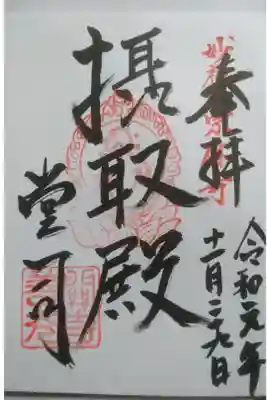 奉拝
摂取殿
堂司
令和元年
十一月二十九日